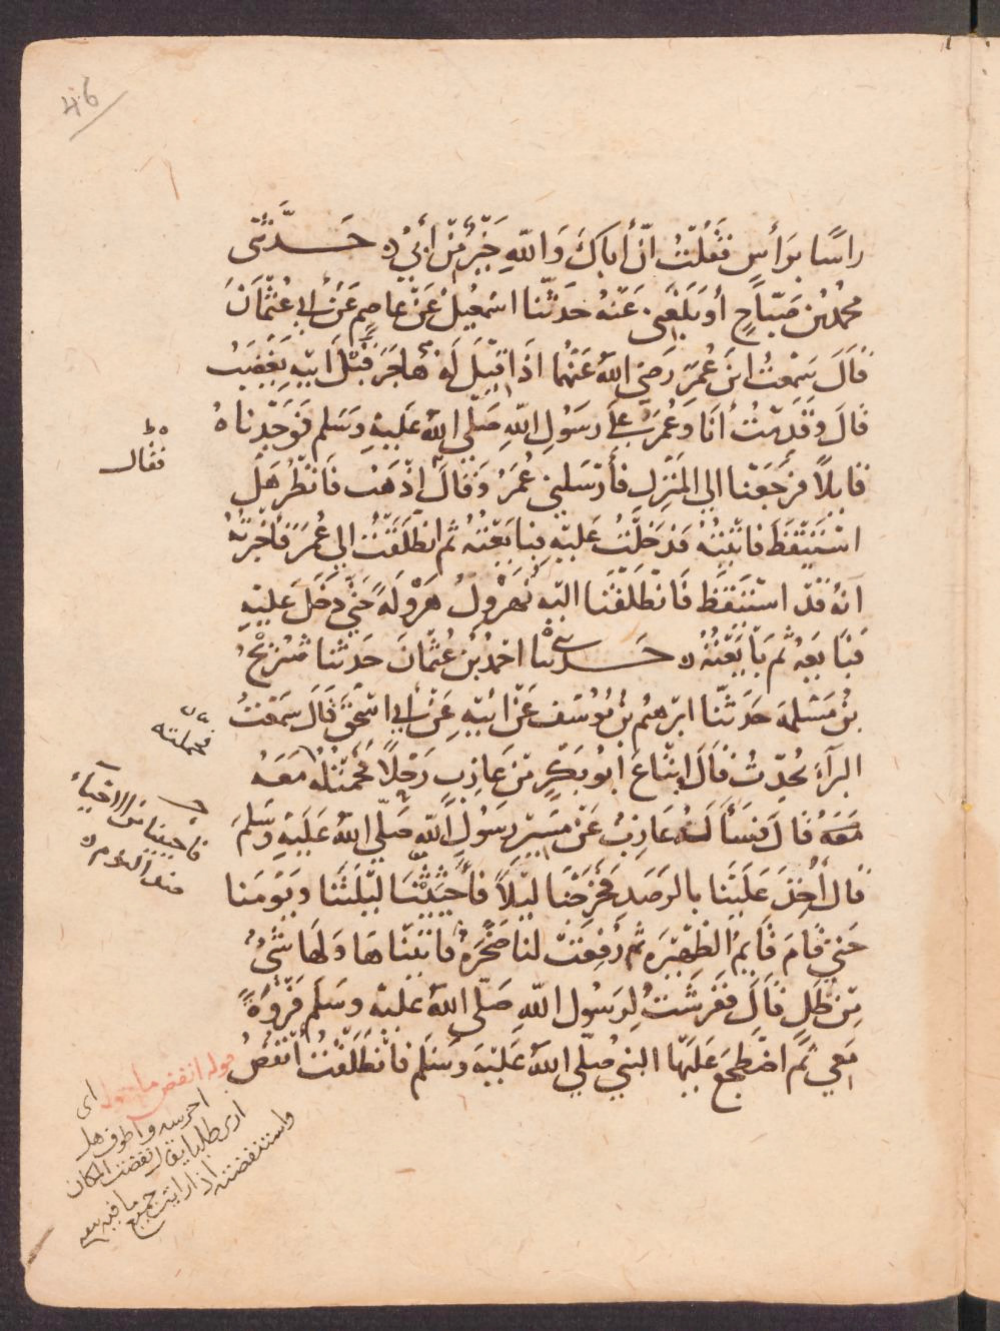 46
راسًا برأس فقلت انّ أباك والله خير من أبي ه حدثني
محمد بن صباح أو بلغني عنه حدثنا اسمعيل عن عاصم عن أبي عثمان
قال سمعت ابن عمر رضي الله عنهما اذا قيل له هاجر قبل ابيه يغضب
قال وقدمت أنا وعمر على رسول الله صلى الله عليه وسلم فوجدناه
قايلا فرجعنا الى المنزل فأرسلني عمر وقال اذهب فانظر هل
استيقظ فاتيته فدخلت عليه فبايعته ثم انطلقت الى عمر فاخبرته
انه قد استيقظ فانطلقنا اليه نهرول هرولة حتى دخل عليه
فبايعه ثم بايعته ه حدثنا احمد بن عثمان حدثنا شريح
بن مسلمة حدثنا ابرهيم بن يوسف عن ابيه عن أبي اسحق قال سمعت
البرآء يحدث قال ابتاع أبو بكر من عازب رحلا فحملته معه
معه قال فسأله عازب عن مسير رسول الله صلى الله عليه وسلم
قال أخذ علينا بالرصد فخرجنا ليلا فأحثثنا ليلتنا ويومنا
حتى قام قايم الظهيرة ثم رفعت لنا صخرة فاتيناها ولها شيء
من ظل قال ففرشت لرسول الله صلى الله عليه وسلم فروة
معي ثم اضطجع عليها النبي صلى الله عليه وسلم فانطلقت أنفض
فقال
فحملته
فاحيينا من الاحياء
قوله انفض ما حوله اى
احرسه واطوف هل
ارى طلبا يقال نفضت المكان
واستنفضته اذا رايت جميع ما فيه